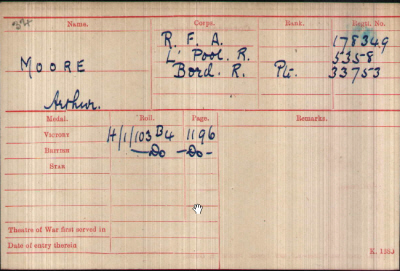 Name. Corps. Rank. Regtl. No.
R. F. A. 178349
MOORE L'Pool. R. 5358
Bord. R. Pte. 33753
Arthur.
Medal. Roll. Page. Remarks.
VICTORY H/1/103 B4 1196
BRITISH —Do —Do—
STAR
Theatre of War first served in
Date of entry therein K. 1380